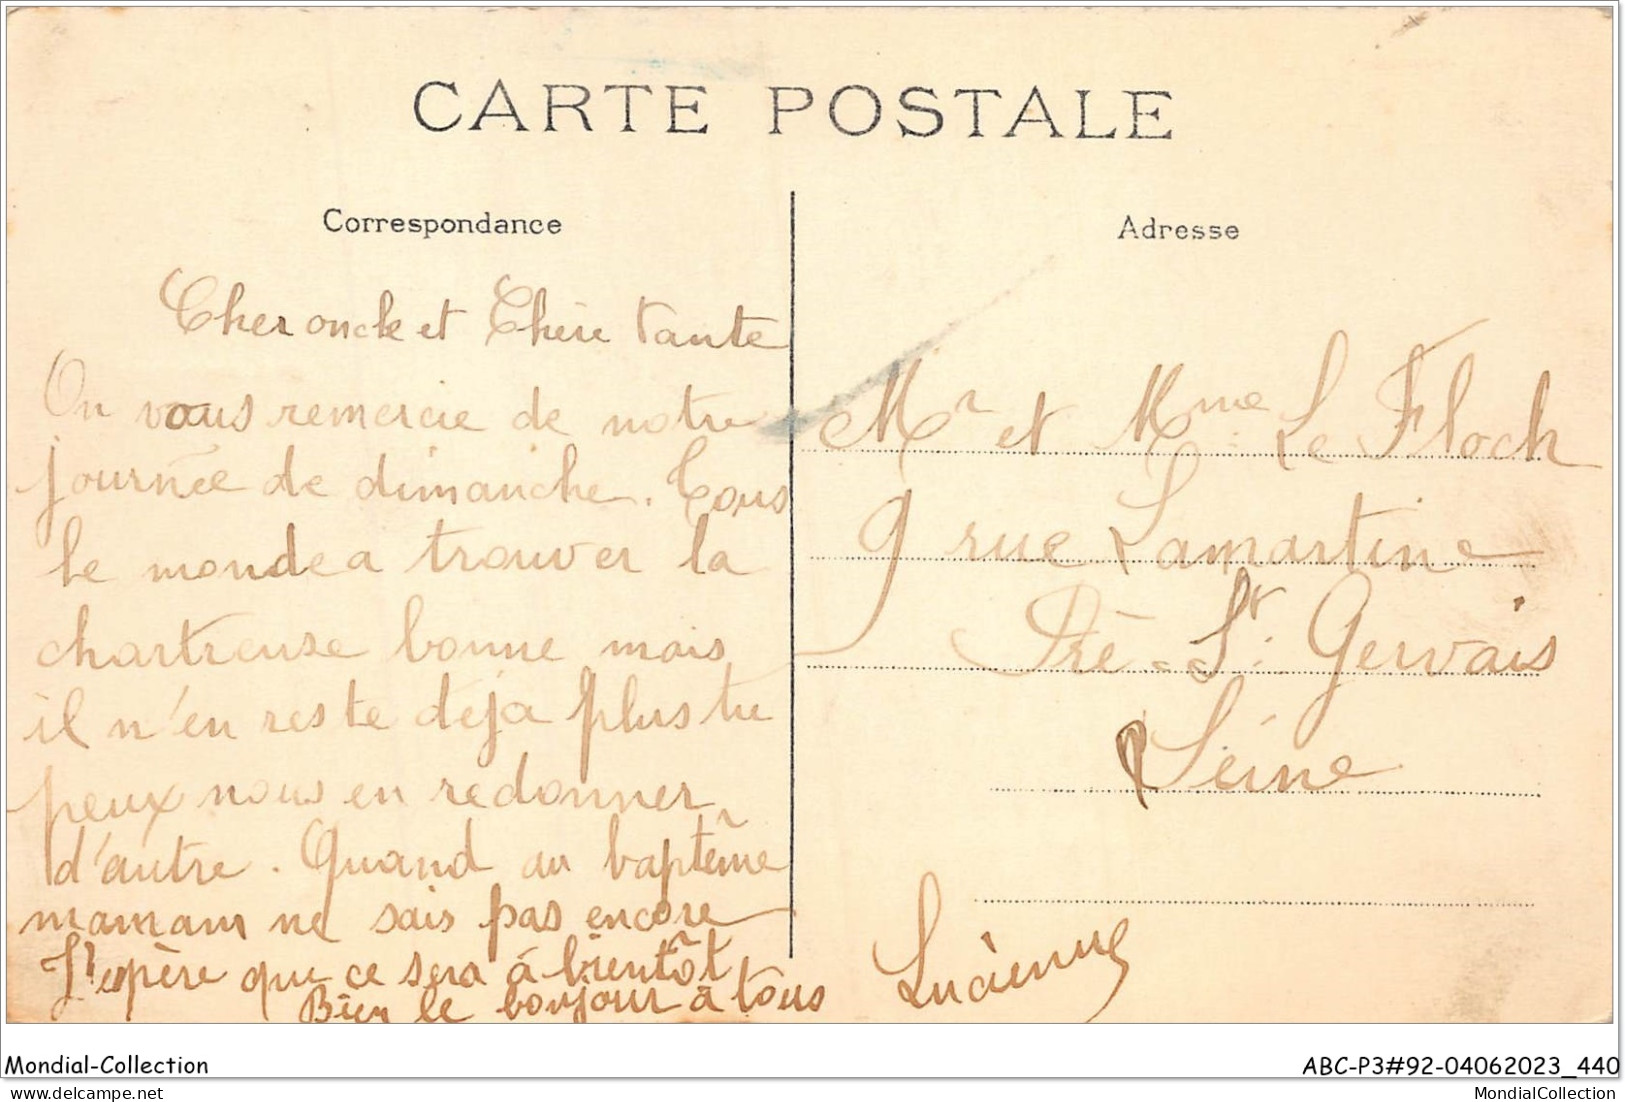 CARTE POSTALE
Correspondance
Cher oncle et Chère tante
On vous remercie de notre
journée de dimanche. Tous
le monde a trouver la
chartreuse bonne mais
il n'en reste déja plus tu
peux nous en redonner
d'autre. Quand au baptême
maman ne sais pas encore
J'espère que ce sera à bientôt
Bien le bonjour à tous
Lucienne
Adresse
Mr et Mme Le Floch
9 rue Lamartine
Pré-St. Gervais
Seine
Mondial-Collection
ABC-P3#92-04062023_440
MondialCollection
MondialCollection